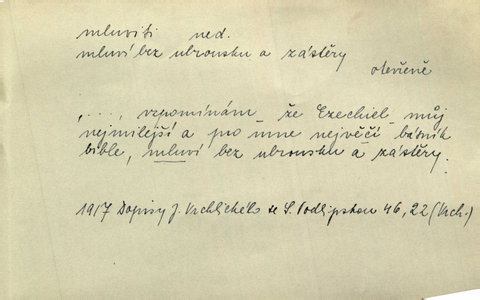 mluviti ned.
mluví bez ubrousku a zástěry
otevřeně
„..., vzpomínám, že Ezechiel, můj
nejmilejší a pro mne největčí básník
bible, mluví bez ubrousku a zástěry.
1917 Dopisy J. Vrchlického se S. Podlipskou 46, 22 (Vrch.)